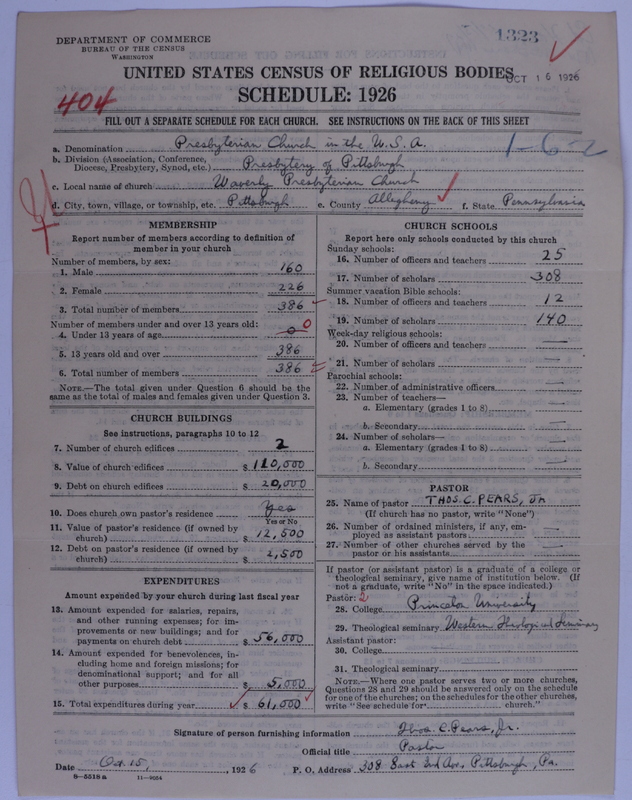 DEPARTMENT OF COMMERCE
BUREAU OF THE CENSUS
WASHINGTON
1323
UNITED STATES CENSUS OF RELIGIOUS BODIES
OCT 16 1926
SCHEDULE: 1926
404
FILL OUT A SEPARATE SCHEDULE FOR EACH CHURCH. SEE INSTRUCTIONS ON THE BACK OF THIS SHEET
1-62
a. Denomination Presbyterian Church in the U.S.A.
b. Division (Association, Conference, Diocese, Presbytery, Synod, etc.) Presbytery of Pittsburgh
c. Local name of church Waverly Presbyterian Church
d. City, town, village, or township, etc. Pittsburgh e. County Allegheny f. State Pennsylvania
MEMBERSHIP
Report number of members according to definition of member in your church
Number of members, by sex:
1. Male 160
2. Female 226
3. Total number of members 386
Number of members under and over 13 years old:
4. Under 13 years of age 0 0
5. 13 years old and over 386
6. Total number of members 386
NOTE.—The total given under Question 6 should be the same as the total of males and females given under Question 3.
CHURCH BUILDINGS
See instructions, paragraphs 10 to 12
7. Number of church edifices 2
8. Value of church edifices $ 110,000
9. Debt on church edifices $ 20,000
10. Does church own pastor's residence Yes
Yes or No
11. Value of pastor's residence (if owned by church) $ 12,500
12. Debt on pastor's residence (if owned by church) 2,500
EXPENDITURES
Amount expended by your church during last fiscal year
13. Amount expended for salaries, repairs, and other running expenses; for improvements or new buildings; and for payments on church debt $ 56,000
14. Amount expended for benevolences, including home and foreign missions; for denominational support; and for all other purposes $ 5,000
15. Total expenditures during year $ 61,000
CHURCH SCHOOLS
Report here only schools conducted by this church
Sunday schools:
16. Number of officers and teachers 25
17. Number of scholars 308
Summer vacation Bible schools:
18. Number of officers and teachers 12
19. Number of scholars 140
Week-day religious schools:
20. Number of officers and teachers —
21. Number of scholars —
Parochial schools:
22. Number of administrative officers —
23. Number of teachers—
a. Elementary (grades 1 to 8) —
b. Secondary —
24. Number of scholars—
a. Elementary (grades 1 to 8) —
b. Secondary —
PASTOR
25. Name of pastor THOS. C. PEARS, JR
(If church has no pastor, write "None")
26. Number of ordained ministers, if any, employed as assistant pastors —
27. Number of other churches served by the pastor or his assistants —
If pastor (or assistant pastor) is a graduate of a college or theological seminary, give name of institution below. (If not a graduate, write "No" in the space indicated.)
Pastor: 2
28. College Princeton University
29. Theological seminary Western Theological Seminary
Assistant pastor:
30. College
31. Theological seminary
NOTE.—Where one pastor serves two or more churches, Questions 28 and 29 should be answered only on the schedule for one of the churches; on the schedules for the other churches, write "See schedule for church."
Signature of person furnishing information Thos. C. Pears, Jr.
Official title Pastor
Date Oct 15, 1926 P. O. Address 308 East End Ave., Pittsburgh, Pa.
8—5518 a 11—9064